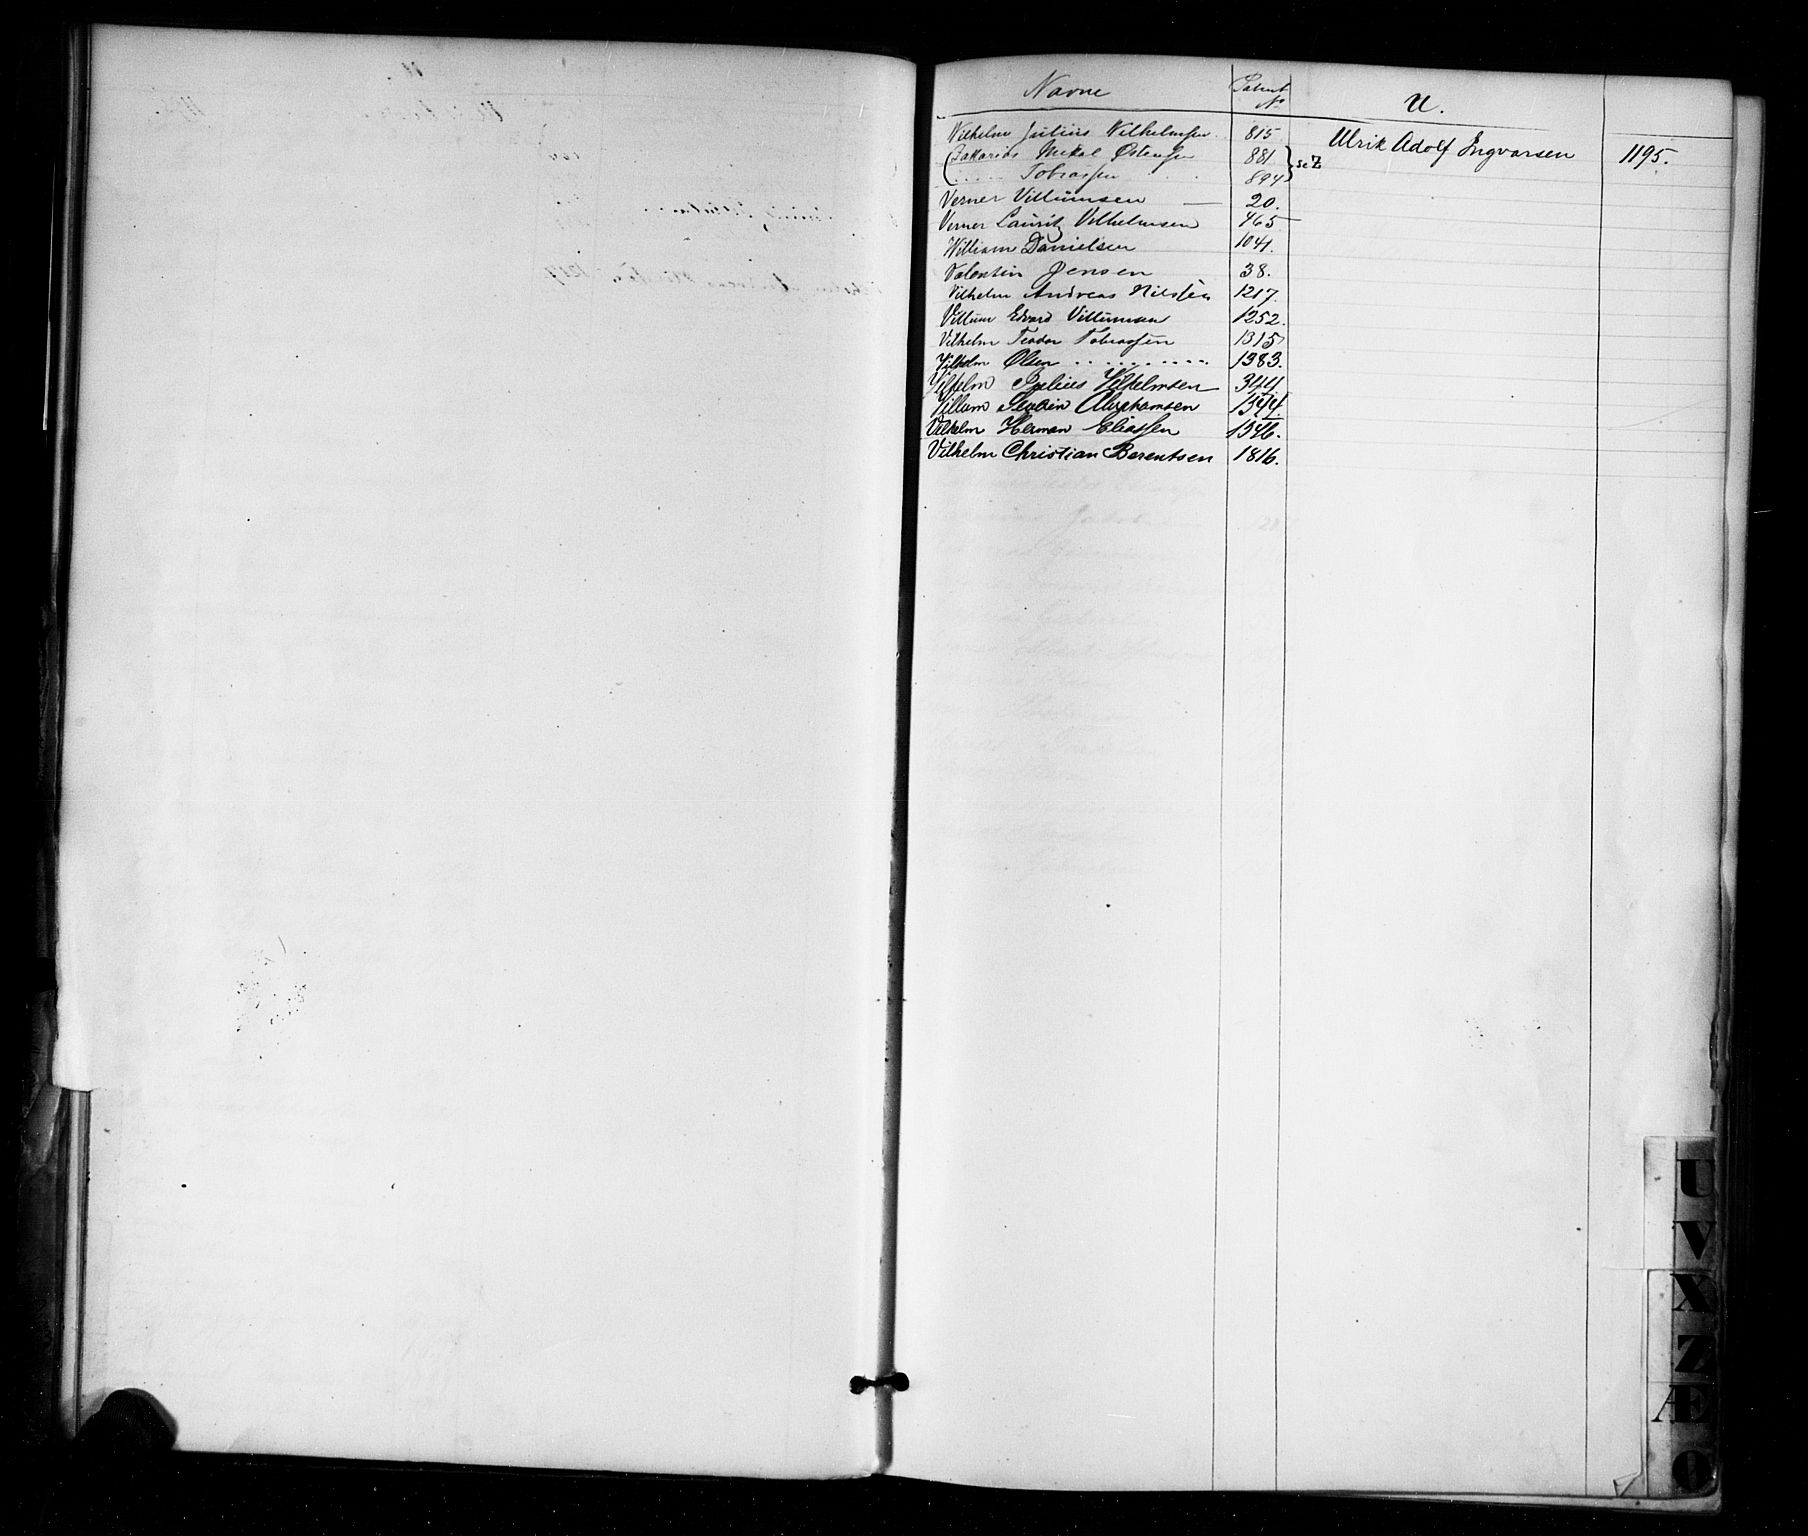 Navne Patent No U.
Wilhelm Julius Wilhelmsen. 815
Zakarias Mikal Østensen 881 se Z
..... Tobiassen . . 894
Verner Villumsen — 20.
Verner Lauritz Vilhelmsen 465
William Danielsen 1041.
Valentin Jensen 38.
Vilhelm Andreas Nilssen 1217.
Villum Edvard Villumsen 1252.
Vilhelm Teodor Tobiassen 1315
Vilhelm Olsen .......... 1383.
Vilhelm Julius Vilhelmsen 344
Villum Severin Abrahamsen 1544.
Vilhelm Herman Eliassen 1546.
Vilhelm Christian Berentsen 1816.
Ulrik Adolf Ingvarsen 1195.
U
V
X
Z
Æ
Ø